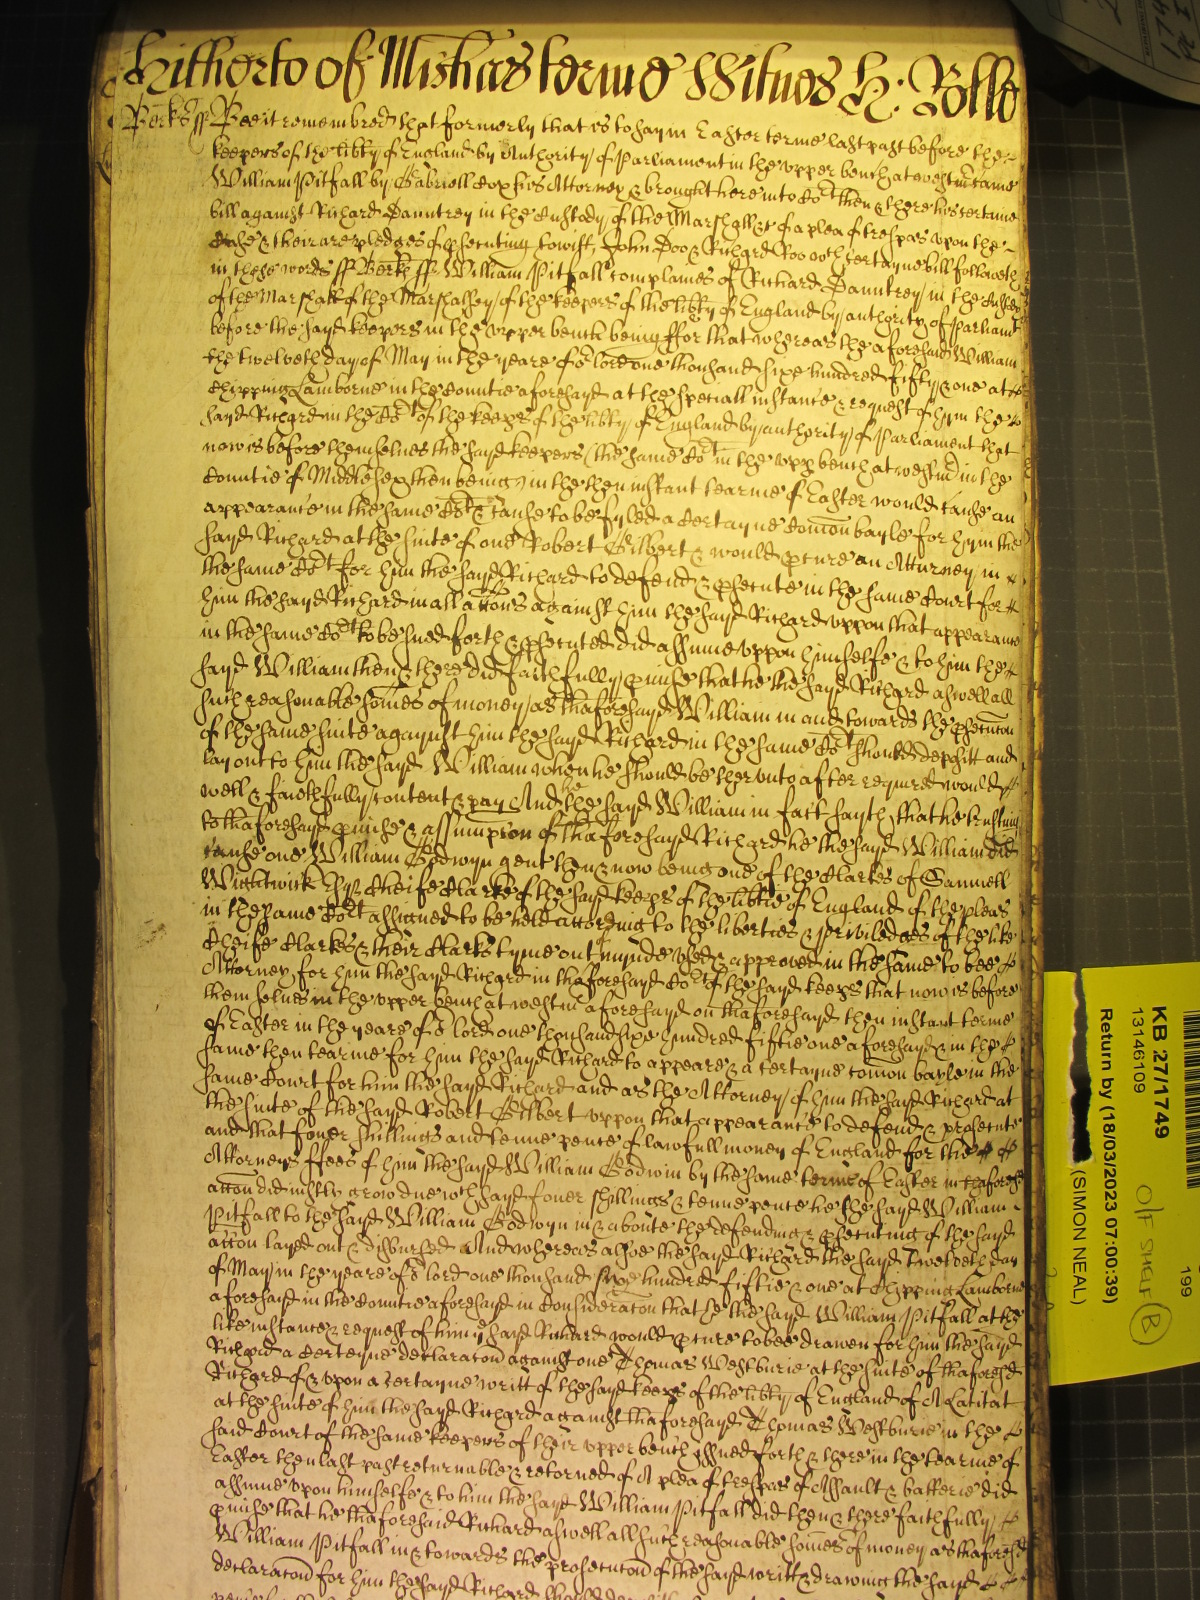 Hitherto of Mich'as terme Witnes H: Rolle
Berks ss Bee it remembred that formerly that is to say in Easter terme last past before the
keepers of the lib'ty of England by Authority of Parliament in the upper bench at westm' came
William Pitfall by Gabriell Cox his Attorney & brought here into Co't then & there his certaine
bill against Richard Dauntrey in the Custody of the Marshall &c of a plea of trespas upon the
Case & their are pledges of p'secuting towitt, John Doo & Richard Roo w'ch certayne bill followeth
in these words ss Berks ss William Pitfall complaines of Richard Dauntrey in the Custody
of the Marshall of the Marshalsey of the keepers of the lib'ty of England by authority of Parliam't
before the sayd keepers in the upper bench being ffor that whereas the aforesaid William
the twelveth day of May in the yeare of o'r lord one thousand sixe hundred fifty & one at
Chipping Lamborne in the Countie aforesayd at the speciall instance & request of hym the
sayd Richard in the Co't of the keep's of the lib'ty of England by authority of Parliament that
now is before themselves the sayd keepers (the same Co't in the upp' bench at westm' in the
Countie of Middlesex then being) in the then instant tearme of Easter would cause an
appearance in the same Co't & cause to be fyled a Certayne Com'on bayle for hym the
sayd Richard at the suite of one Robert Gilbert & would p'cure an Atturney in
the same Co't for him the sayd Richard to defend & p'secute in the same Court for
him the sayd Richard in all acc'ons against him the sayd Richard uppon that appearance
in the same Co't to be sued forth & p'secuted did assume uppon himselfe & to him the
sayd William then & there did faithfully p'mise that he the sayd Richard aswell all
such reasonable som'es of money as thaforesayd William in and towards the p'secuc'on
of the same suite agaynst him the sayd Richard in the same Co't should deposite and
lay out to him the sayd William when he should be therunto after required would
well & faithfully content & pay And the sayd William in fact sayth that he trusting
to thaforesayd p'mise & assumpc'on of thaforesayd Richard he the sayd William did
cause one William Godwyn gent then & now being one of the Clarkes of Samuell
Wightwick Esq'r Cheife Clarke of the sayd keep's of the lib'tie of England of the pleas
in the same Co't assigned to be held according to the liberties & priviledges of the like
Cheife Clarkes & their Clarks tyme out of mynde used & approved in the same to bee
Attorney for him the sayd Richard in thaforesayd Co't of the sayd keep's that now is before
themselves in the upper bench at westm' aforesayd on thaforesayd then instant terme
of Easter in the yeare of o'r lord one thousand sixe hundred fiftie one aforesayd & in the
same then tearme for him the sayd Richard to appeare & a certayne com'on bayle in the
same Court for him the sayd Richard and as the Attorney of him the sayd Richard at
the suite of the sayd Robert Gilbert uppon that appearance to defend & prosecute
and that fower shillings and tenne pence of lawfull money of England for the
Attorneys ffees of him the sayd William Godwin by the same terme of Easter in thaforesd
acc'on did iustly grow due w'ch sayd fower shillings & tenne pence he the sayd William
Pitfall to the sayd William Godwyn in & aboute the defending & p'secuting of the sayd
acc'on layed out & disbursed And whereas alsoe the sayd Richard the sayd Twelveth day
of May in the yeare of o'r lord one thousand sixe hundred fiftie & one at Chipping Lamborne
aforesayd in the Countie aforesayd in Considerac'on that he the sayd William Pitfall at the
like instance & request of him y'e sayd Richard would p'cure to bee drawen for him the sayd
Richard a Certeyne declarac'on against one Thomas Westburie at the suite of thaforesd
Richard of & upon a certayne writt of the sayd keep's of the lib'ty of England of A Latitat
at the suite of him the sayd Richard against thaforesayd Thomas Westburie in the
said Court of the same keepers of their upper bench yssued forth & there in the tearme of
Easter then last past returnable & retorned of A plea of trespas of Assault & batterie did
assume upon himselfe & to him the sayd William Pitfall did then & there faithfully
p'mise that he thaforesaid Richard aswell all such reasonable som'es of money as thaforesd
William Pitfall in & towards the prosecuc'on of the sayd writt & drawing the sayd
declarac'on for him the sayd Richard should
KB 27/1749
13146109
Return by (18/03/2023 07:00:39)
(SIMON NEAL)
199
O/F SHELF (B)